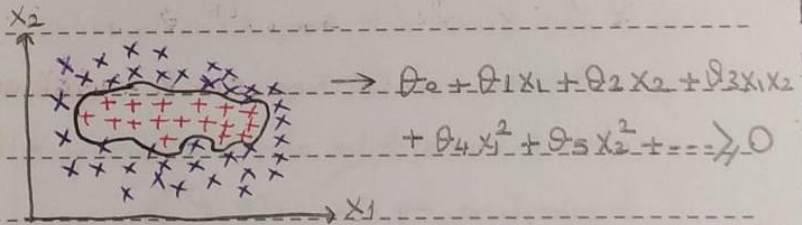 x2
→ θ0 + θ1x1 + θ2x2 + θ3x1x2
+ θ4x1² + θ5x2² + --- ≥ 0
x1